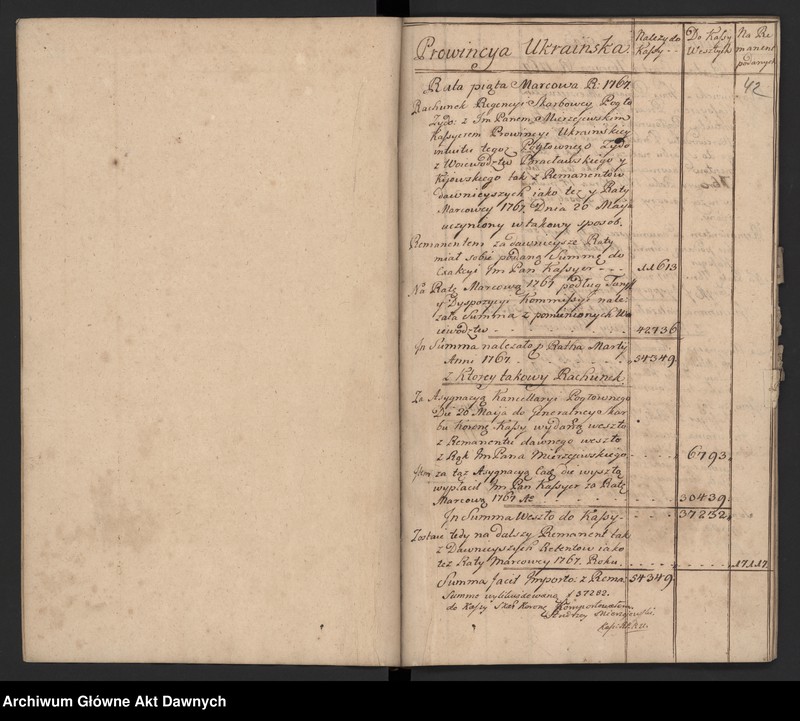 Prowincya Ukraińska.
Należy do Kassy --
Do Kassy Weszłych
Na Remanent podanych
42
Rata piąta Marcowa R: 1767.
Rachunek Regencyi Skarbowey Pogło
Zydo: z Im Panem Mierzejewskim
Kassyerem Prowincyi Ukrainskiey
intuitu tegoż Pogłownego Zydo
z Woiewodztw Bracławskiego y
Kijowskiego tak z Remanentow
dawnieyszych iako też y Raty
Marcowey 1767. Dnia 20 Maija
uczyniony w takowy sposób.
Remanentem za dawnieysze Raty
miał sobie podaną Summę do
Exakcyi Im Pan Kassyer --- 11613
Na Ratę Marcową 1767 podług Taryf
y Dyspozycyi Kommissyi nale:
żała Summa z pomienionych Wo
iewodztw - - - 42736
In Summa należało p Ratha Martij
Anni 1767. - - - 54349.
z Ktorey takowy Rachunek.
Za Asygnacyą Kancellaryi Pogłownego
Die 20 Maija do Generalney Skar
bu Koronę Kassy wydaną weszło
z Remanentu dawnego weszło
z Rąk Im Pana Mierzejewskiego - - - 6793.
Item za tąż Asygnacyą Ead. die wyszłą
wypłacił Im Pan Kassyer za Ratę
Marcową 1767 - - - 30439.
In Summa Weszło do Kassy - - - 37232.
Zostaie tedy na dalszy Remanent tak
z Dawnieyszych Retentow iako
też Raty Marcowey 1767. Roku. - - - 17117.
Summa facit Importo: z Rema: 54349.
Summę wylikwidowaną f 37232.
do Kassy Skar Koronę Komportowałem.
Andrzey Mierzejewski
Archiwum Główne Akt Dawnych